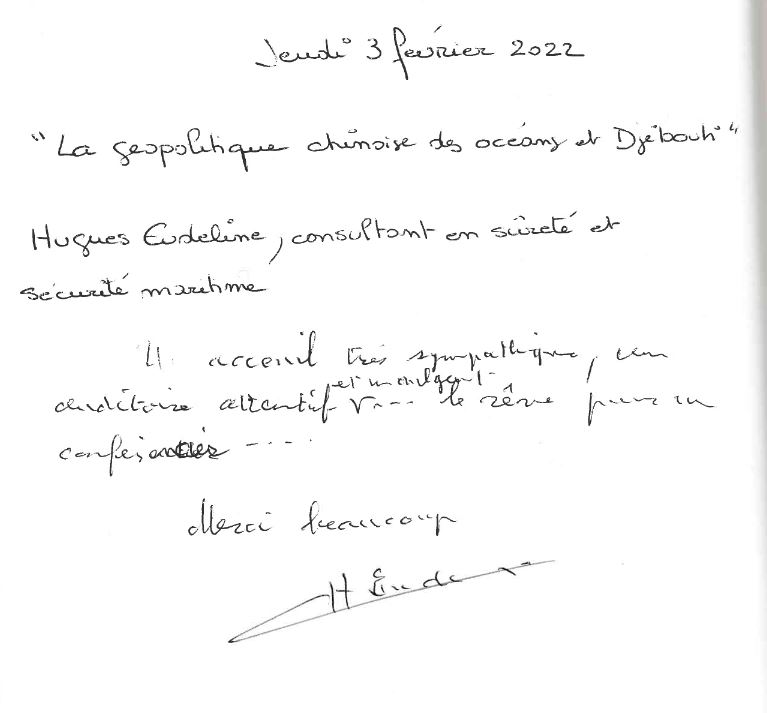 Jeudi 3 février 2022
"La geopolitique chinoise des océans et Djibouti"
Hugues Eudeline, consultant en sûreté et
sécurité maritime
Un accueil très sympathique, un
et indulgent
auditoire attentif .... le rêve pour un
conférencier ....
Merci beaucoup
H Eude